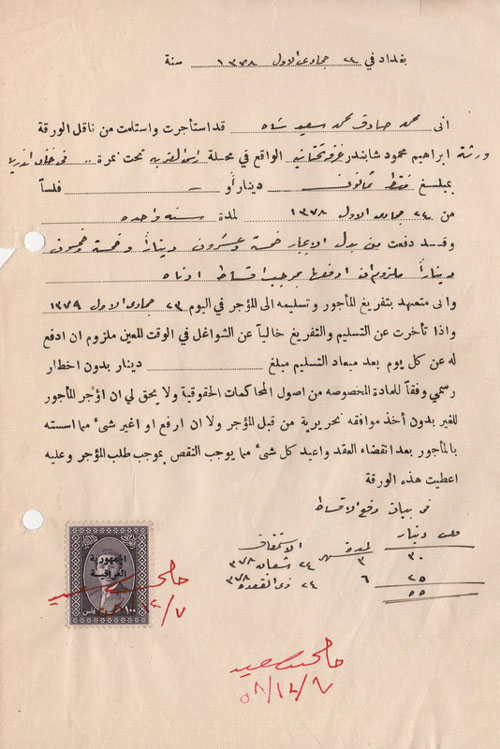 بغداد في ٢٤ جمادى الاول ١٣٧٨ سنة
انى محمد صادق محمد سعيد شاه قد استأجرت واستلمت من ناقل الورقة
ورثة ابراهيم محمود شابندر غرفة تحتانيه الواقع في محلة رأس القريه تحت نمرة .. في خان
بمبلغ فقط ثمانون دينار أو — فلساً
من ٢٤ جمادى الاول ١٣٧٨ لمدة سنه واحده
وقد دفعت من بدل الايجار خمسة وعشرون ديناراً وخمسة وخمسون
ديناراً ملزوم ان ادفعها بموجب اقساط ادناه
وانى متعهد بتفريغ المأجور وتسليمه الى المؤجر في اليوم ٢٣ جمادى الاول ١٣٧٩
واذا تأخرت عن التسليم والتفريغ خالياً عن الشواغل في الوقت المعين ملزوم ان ادفع
له عن كل يوم بعد ميعاد التسليم مبلغ دينار بدون اخطار
رسمي وفقاً للمادة المخصوصه من اصول المحاكمات الحقوقية ولا يحق لي ان اؤجر المأجور
للغير بدون أخذ موافقه تحريرية من قبل المؤجر ولا ان ارفع او اغير شيء مما اسسته
بالمأجور بعد انقضاء العقد واعيد كل شيء مما يوجب النقص بموجب طلب المؤجر وعليه
اعطيت هذه الورقة
في بيان دفع الاقساط
فلس دينار لمدة شهر الاستحقاق
٣٠ ٣ ٢٤ شعبان ٣٧٨
٢٥ ٦ ٢٤ ذي القعده ٣٧٨
٥٥
الجمهورية
العراقية
١٠٠ فلس
٥٨/١٢/٧